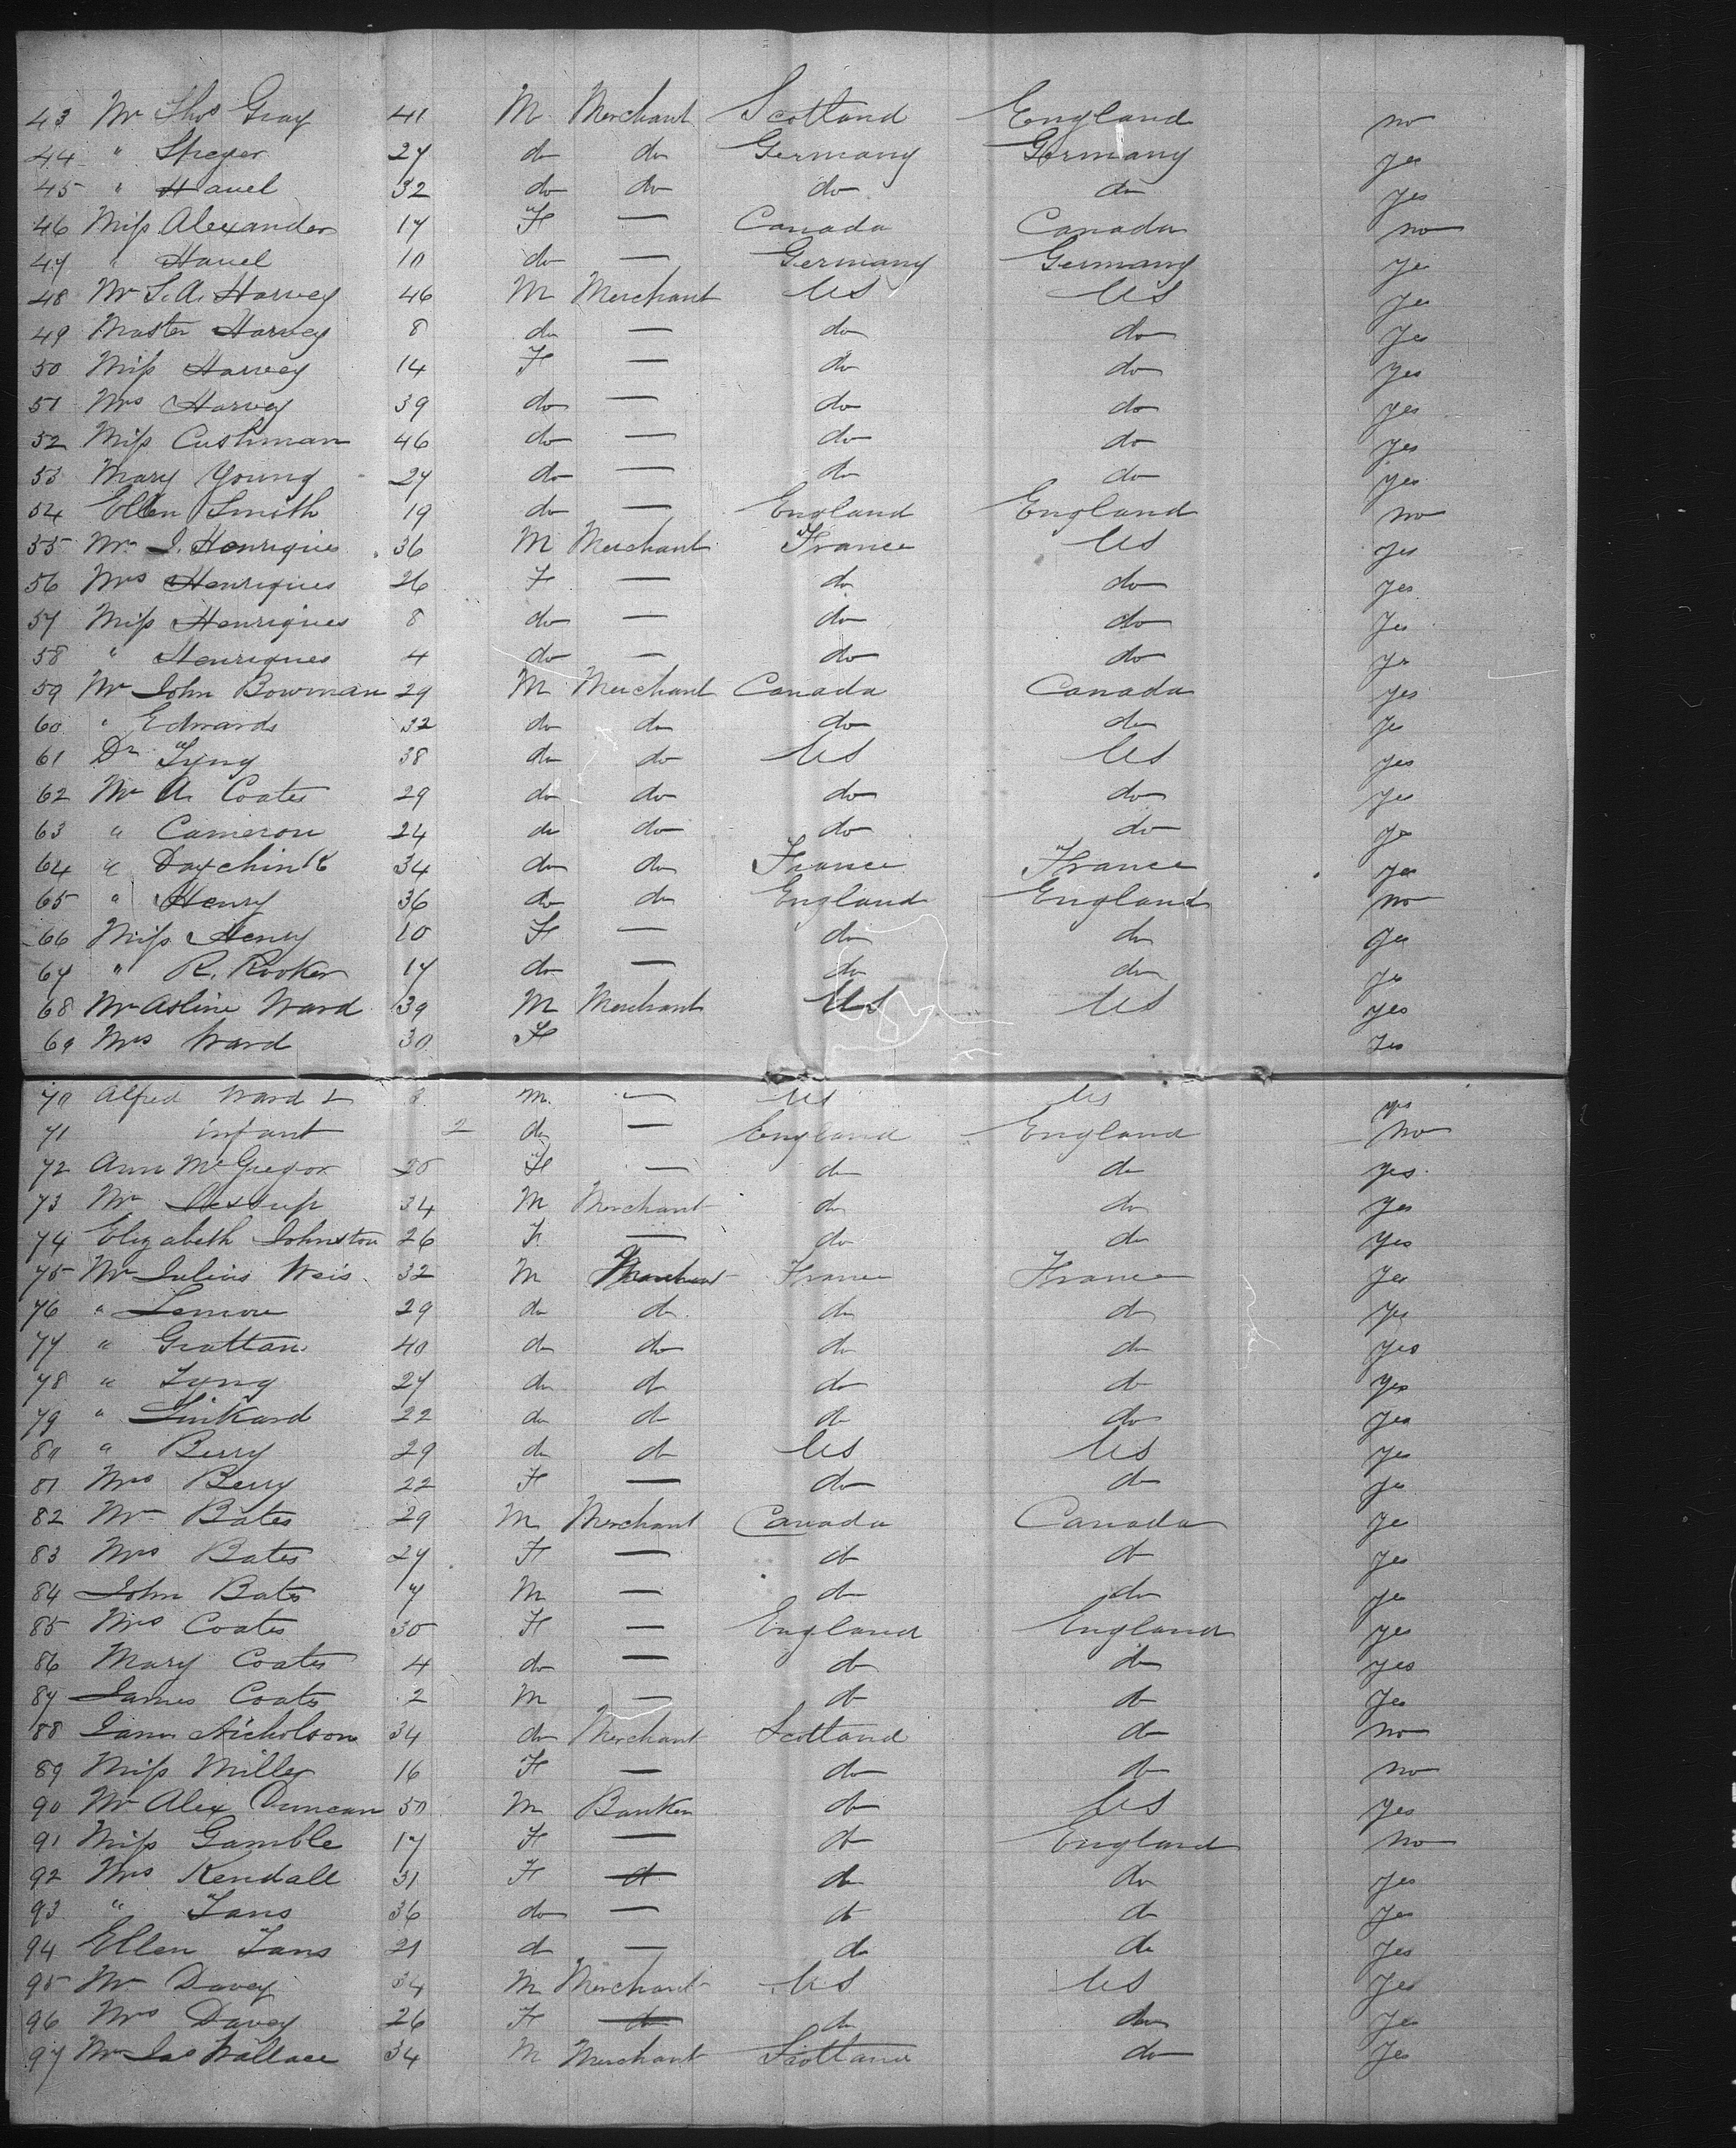 43 Mr Thos Gray 41 M Merchant Scotland England no
44 " Speyer 27 do do Germany Germany yes
45 " Hauel 32 do do do do yes
46 Miss Alexander 17 F — Canada Canada no
47 " Hauel 10 do — Germany Germany yes
48 Mr S. A. Harvey 46 M Merchant US US yes
49 Master Harvey 8 do — do do yes
50 Miss Harvey 14 F — do do yes
51 Mrs Harvey 39 do — do do yes
52 Miss Cushman 46 do — do do yes
53 Mary Young 27 do — do do yes
54 Ellen Smith 19 do — England England no
55 Mr J. Henriques 36 M Merchant France US yes
56 Mrs Henriques 26 F — do do yes
57 Miss Henriques 8 do — do do yes
58 " Henriques 4 do — do do yes
59 Mr John Bowman 29 M Merchant Canada Canada yes
60 " Edwards 32 do do do do yes
61 Dr Tyng 38 do do US US yes
62 Mr A. Coates 29 do do do do yes
63 " Cameron 24 do do do do yes
64 " Daychink 34 do do France France yes
65 " Henry 36 do do England England no
66 Miss Henry 10 F — do do yes
67 " R. Rooker 17 do — do do yes
68 Mr Asline Ward 39 M Merchant US US yes
69 Mrs Ward 30 F yes
70 Alfred Ward M. — US US yes
71 infant 2 do — England England no
72 Ann McGregor F — do do yes
73 Mr Jessup 34 M Merchant do do yes
74 Elizabeth Johnston 26 F — do do yes
75 Mr Julius Weis 32 M Merchant France France yes
76 " Lemow 29 do do do do yes
77 " Grattan 40 do do do do yes
78 " Tyng 27 do do do do yes
79 " Linkard 22 do do do do yes
80 " Berry 29 do do US US yes
81 Mrs Berry 22 F — do do yes
82 Mr Bates 29 M Merchant Canada Canada yes
83 Mrs Bates 27 F — do do yes
84 John Bates 7 M — do do yes
85 Mrs Coates 30 F — England England yes
86 Mary Coates 4 do — do do yes
87 James Coats 2 M — do do yes
88 James Nicholson 34 do Merchant Scotland do no
89 Miss Miller 16 F — do do no
90 Mr Alex Duncan 50 M Banker do US yes
91 Miss Gamble 17 F — do England no
92 Mrs Kendall 31 F — do do yes
93 " Tans 36 do — do do yes
94 Ellen Tans 21 do — do do yes
95 Mr Davey 34 M Merchant US US yes
96 Mrs Davey 26 F — do do yes
97 Mr Jas Wallace 34 M Merchant Scotland do yes